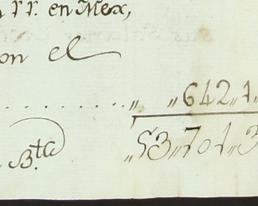 rr. en Mex,
on el
.......... „ „642„1„
B.te „53„701„3